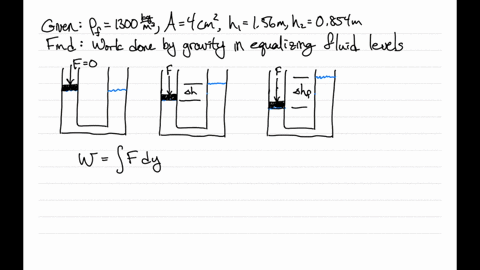 Given: ρf = 1300 kg/m³, A = 4cm², h₁ = 1.56m, h₂ = 0.854m
Find: Work done by gravity in equalizing fluid levels
F=0 F F
Δh Δhp
W = ∫F dy